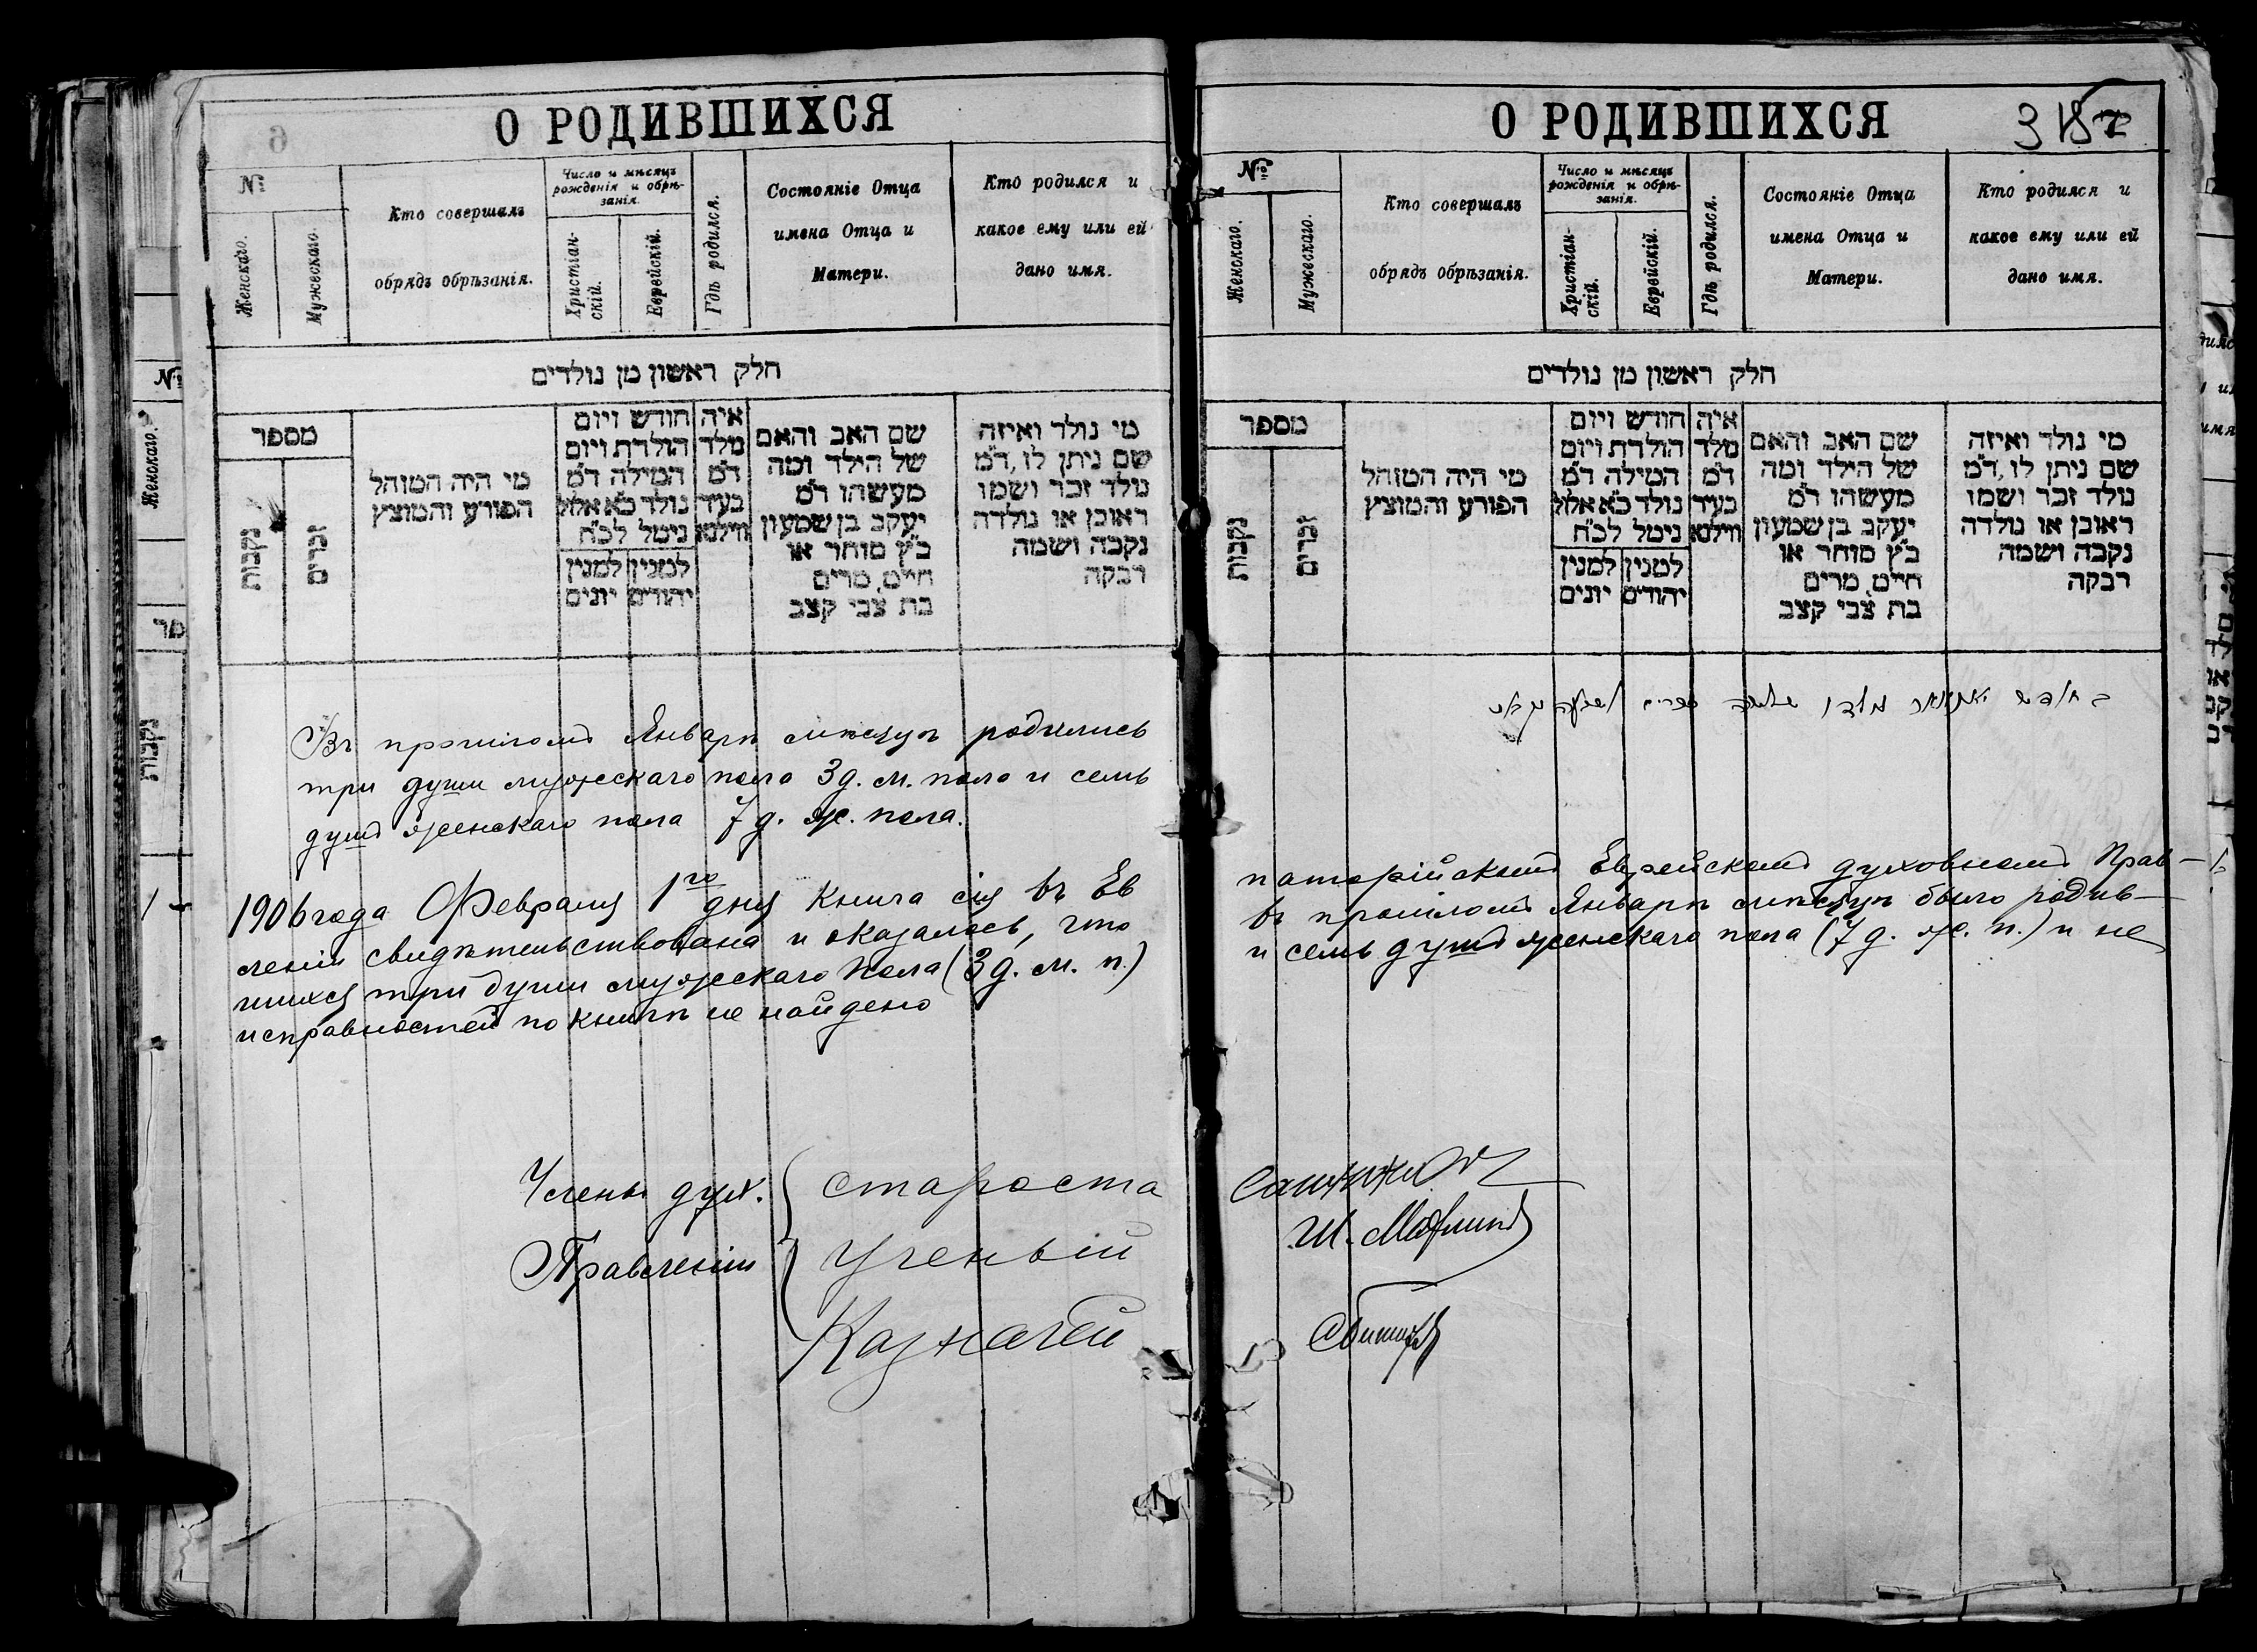 О РОДИВШИХСЯ
№
Женскаго.
Мужескаго.
Кто совершалъ
обрядъ обрѣзанія.
Число и мѣсяцъ
рожденія и обрѣ-
занія.
Христіан-
скій.
Еврейскій.
Гдѣ родился.
Состояніе Отца
имена Отца и
Матери.
Кто родился и
какое ему или ей
дано имя.
חלק ראשון מן נולדים
מספר
נקבות
זכרים
מי היה המוהל
הפורע והמוצץ
חודש ויום
הולדת ויום
המילה ד״מ
נולד כ״א אלול
נימל לכ״ח
למנין
יהודים
למנין
יונים
איה
מלד
ד״מ
בעיר
ווילנא
שם האב והאם
של הילד ומה
מעשהו ד״מ
יעקב בן שמעון
כ״ץ סוחר או
חי״ט, מרים
בת צבי קצב
מי נולד ואיזה
שם ניתן לו, ד״מ
נולד זכר ושמו
ראובן או נולדה
נקבה ושמה
רבקה
Въ прошломъ Январѣ мѣсяцѣ родились
три души мужескаго пола 3 д. м. пола и семь
душъ женскаго пола 7 д. ж. пола.
1906 года Февраля 1го дня книга сія въ Ев
леніи свидѣтельствована и оказалось, что
шихся три души мужескаго пола (3 д. м. п.)
исправностей по книгѣ не найдено
Члены дух.
Правленія
Староста
Ученый
Казначей
О РОДИВШИХСЯ
№
Женскаго.
Мужескаго.
Кто совершалъ
обрядъ обрѣзанія.
Число и мѣсяцъ
рожденія и обрѣ-
занія.
Христіан-
скій.
Еврейскій.
Гдѣ родился.
Состояніе Отца
имена Отца и
Матери.
Кто родился и
какое ему или ей
дано имя.
חלק ראשון מן נולדים
מספר
נקבות
זכרים
מי היה המוהל
הפורע והמוצץ
חודש ויום
הולדת ויום
המילה ד״מ
נולד כ״א אלול
נימל לכ״ח
למנין
יהודים
למנין
יונים
איה
מלד
ד״מ
בעיר
ווילנא
שם האב והאם
של הילד ומה
מעשהו ד״מ
יעקב בן שמעון
כ״ץ סוחר או
חי״ט, מרים
בת צבי קצב
מי נולד ואיזה
שם ניתן לו, ד״מ
נולד זכר ושמו
ראובן או נולדה
נקבה ושמה
רבקה
בחודש יאנואר נולדו שלשה זכרים ושבעה
паторійскомъ Еврейскомъ духовномъ Прав-
въ прошломъ Январѣ мѣсяцѣ было родив-
и семь душъ женскаго пола (7 д. ж. п.) и не